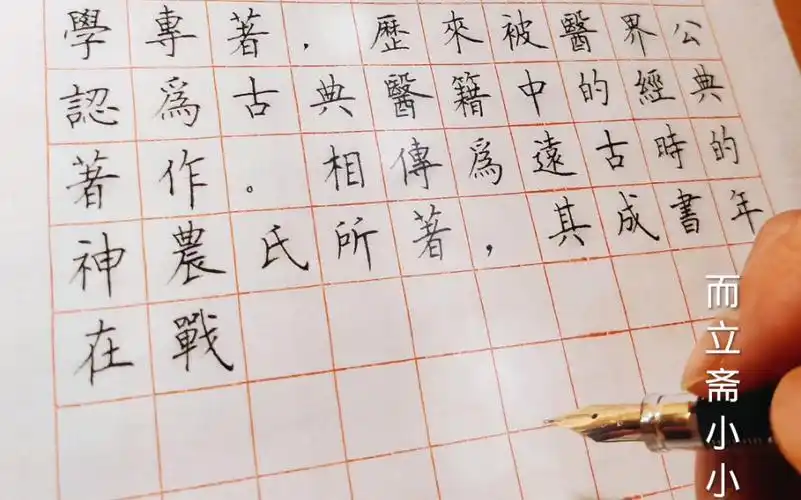 學專著，歷來被醫界公
認爲古典醫籍中的經典
著作。相傳爲遠古時的
神農氏所著，其成書年
在戰
而立斋小小